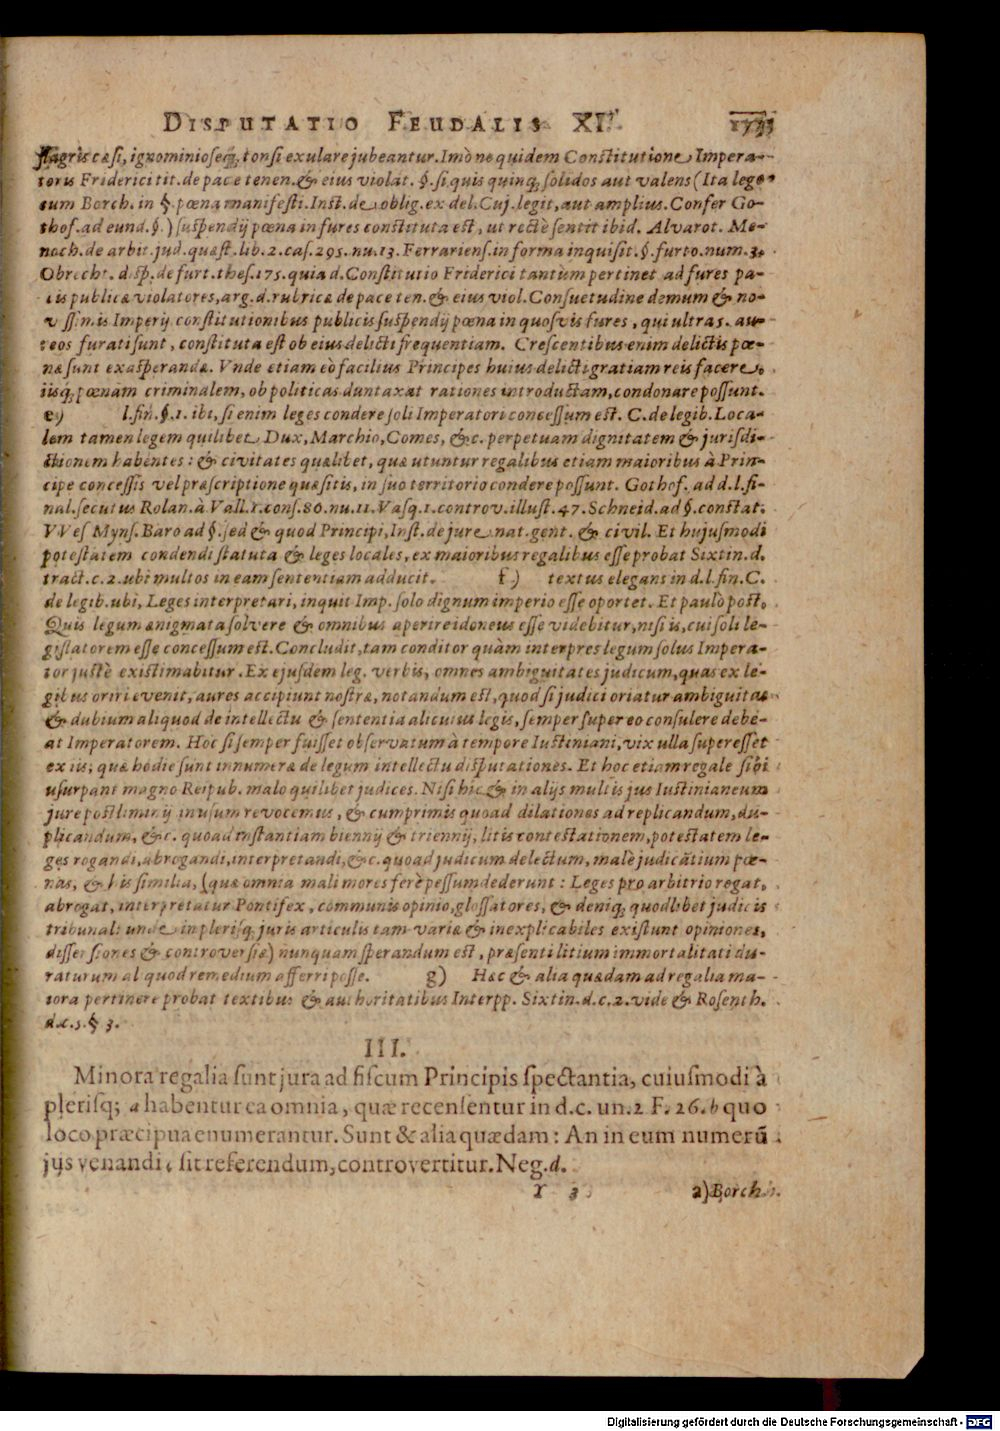 DISPUTATIO FEUDALIS XI. 173
flagris cæsi, ignominioseq́; tonsi exulare jubeantur. Imò ne quidem Constitutione Impera-
toris Friderici tit. de pace tenen. & eius violat. §. si quis quinq; solidos aut valens (Ita lege-
tum Borch. in §. pœna manifesti. Inst. de oblig. ex del. Cuj. legit, aut amplius. Confer Go-
thof. ad eund. §.) suspendij pœna in fures constituta est, ut rectè sentit ibid. Alvarot. Me-
noch. de arbit. jud. quæst. lib. 2. cas. 295. nu. 13. Ferrariens. in forma inquisit. §. furto. num. 3.
Obrecht. disp. de furt. thes. 175. quia d. Constitutio Friderici tantùm pertinet ad fures pa-
cis publicæ violatores, arg. d. rubricæ de pace ten. & eius viol. Consuetudine demum & no-
vissimis Imperij constitutionibus publicis suspendij pœna in quosvis fures, qui ultra 5. au-
reos furati sunt, constituta est ob eius delicti frequentiam. Crescentibus enim delictis pœ-
næ sunt exasperandæ. Vnde etiam eò facilius Principes huius delicti gratiam reis facere,
iisq; pœnam criminalem, ob politicas duntaxat rationes introductam, condonare possunt.
e) l. fin. §. 1. ibi, si enim leges condere soli Imperatori concessum est. C. de legib. Loca-
lem tamen legem quilibet Dux, Marchio, Comes, &c. perpetuam dignitatem & jurisdi-
ctionem habentes: & civitates quælibet, quæ utuntur regalibus etiam maioribus à Prin-
cipe concessis vel præscriptione quæsitis, in suo territorio condere possunt. Gothof. ad d. l. fi-
nal. secutus Rolan. à Vall. 1. cons. 80. nu. 11. Vasq. 1. controv. illust. 47. Schneid. ad §. constat.
VVes Myns. Baro ad §. sed & quod Principi, Inst. de jure nat. gent. & civil. Et hujusmodi
potestatem condendi statuta & leges locales, ex maioribus regalibus esse probat Sixtin. d.
tract. c. 2. ubi multos in eam sententiam adducit. f.) textus elegans in d. l. fin. C.
de legib. ubi, Leges interpretari, inquit Imp. solo dignum imperio esse oportet. Et paulò post,
Quis legum ænigmata solvere & omnibus aperire idoneus esse videbitur, nisi is, cui soli le-
gislatorem esse concessum est. Concludit, tam conditor quàm interpres legum solus Impera-
tor justè existimabitur. Ex ejusdem leg. verbis, omnes ambiguitates judicum, quas ex le-
gibus oriri evenit, aures accipiunt nostræ, notandum est, quod si judici oriatur ambiguitas
& dubium aliquod de intellectu & sententia alicuius legis, semper super eo consulere debe-
at Imperatorem. Hoc si semper fuisset observatum à tempore Iustiniani, vix ulla superesset
ex iis, quæ hodie sunt innumeræ de legum intellectu disputationes. Et hoc etiam regale sibi
usurpant magno Reipub. malo quilibet judices. Nisi hic & in alijs multis jus Iustinianeum
jure postliminij in usum revocemus, & cumprimis quoad dilationes ad replicandum, du-
plicandum, &c. quoad instantiam biennij & triennij, litis contestationem, potestatem le-
ges rogandi, abrogandi, interpretandi, &c. quoad judicum delectum, malè judicātium pœ-
nas, & his similia, (quæ omnia mali mores ferè pessumdederunt: Leges pro arbitrio regat,
abrogat, interpretatur Pontifex, communis opinio, glossatores, & deniq; quodlibet judicis
tribunal: unde in plerisq; juris articulis tam variæ & inexplicabiles existunt opiniones,
dissensiones & controversiæ) nunquam sperandum est, præsenti litium immortalitati du-
raturum alquod remedium afferri posse. g) Hæc & alia quædam ad regalia ma-
iora pertinere probat textibus & authoritatibus Interpp. Sixtin. d. c. 2. vide & Rosenth.
d. c. 5. § 3.
III.
Minora regalia sunt jura ad fiscum Principis spectantia, cuiusmodi à
plerisq; a habentur ea omnia, quæ recensentur in d. c. un. 2 F. 26. b quo
loco præcipua enumerantur. Sunt & alia quædam: An in eum numerū
jus venandi c sit referendum, controvertitur. Neg. d.
Y 3 a) Borch.
Digitalisierung gefördert durch die Deutsche Forschungsgemeinschaft - DFG